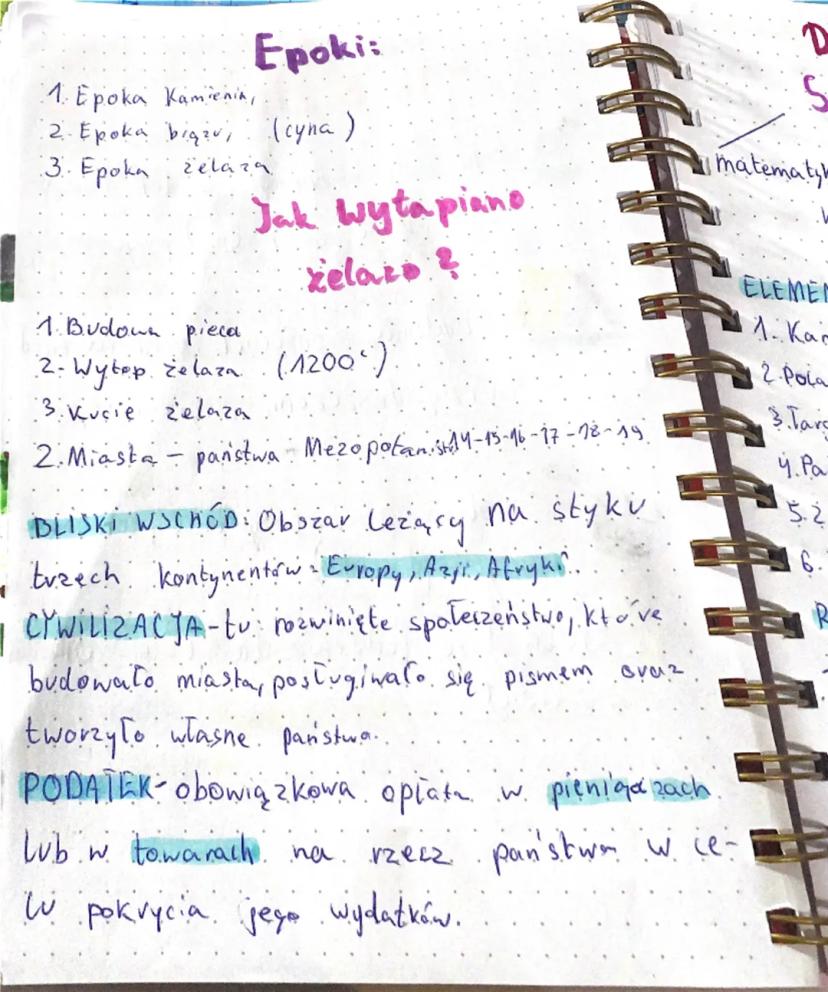 Epoki:
1. Epoka Kamienia,
2. Epoka brązu, (cyna)
3. Epoka żelaza
Jak wytapiano
żelazo?
1. Budowa pieca
2. Wytop żelaza (1200°)
3. Kucie żelaza
2. Miasta - państwa Mezopotamii 14-15-16-17-18-19
BLISKI WSCHÓD: Obszar leżący na styku
trzech kontynentów: Europy, Azji, Afryki.
CYWILIZACJA - tu: rozwinięte społeczeństwo, które
budowało miasta, posługiwało się pismem oraz
tworzyło własne państwa.
PODATEK - obowiązkowa opłata w pieniądzach
lub w towarach na rzecz państwa w ce-
lu pokrycia jego wydatków.
D
S
matematyk
ELEMEN
1. Kan
3. Tarc
4. Pa
5. 2
6.
R